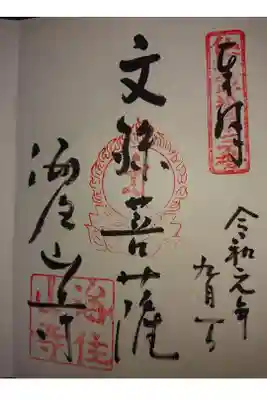 奉拝
令和元年
九月一日
文殊菩薩
海住山寺
海住
山寺